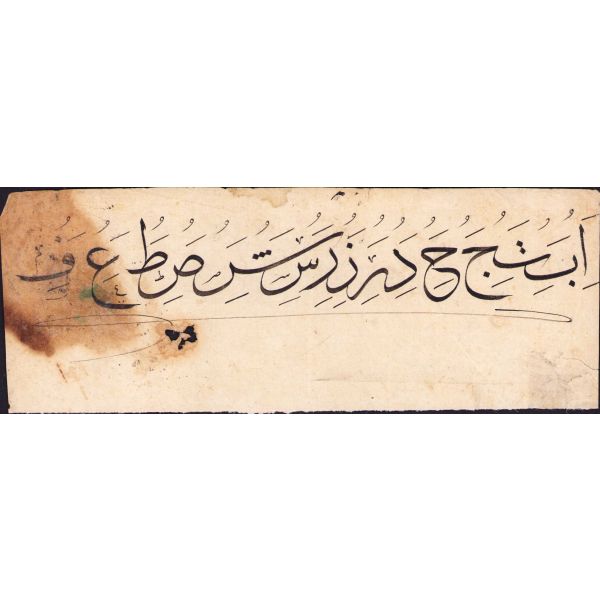 ا ب ت ج ح د ر ز ر س ش ص ط ع ف